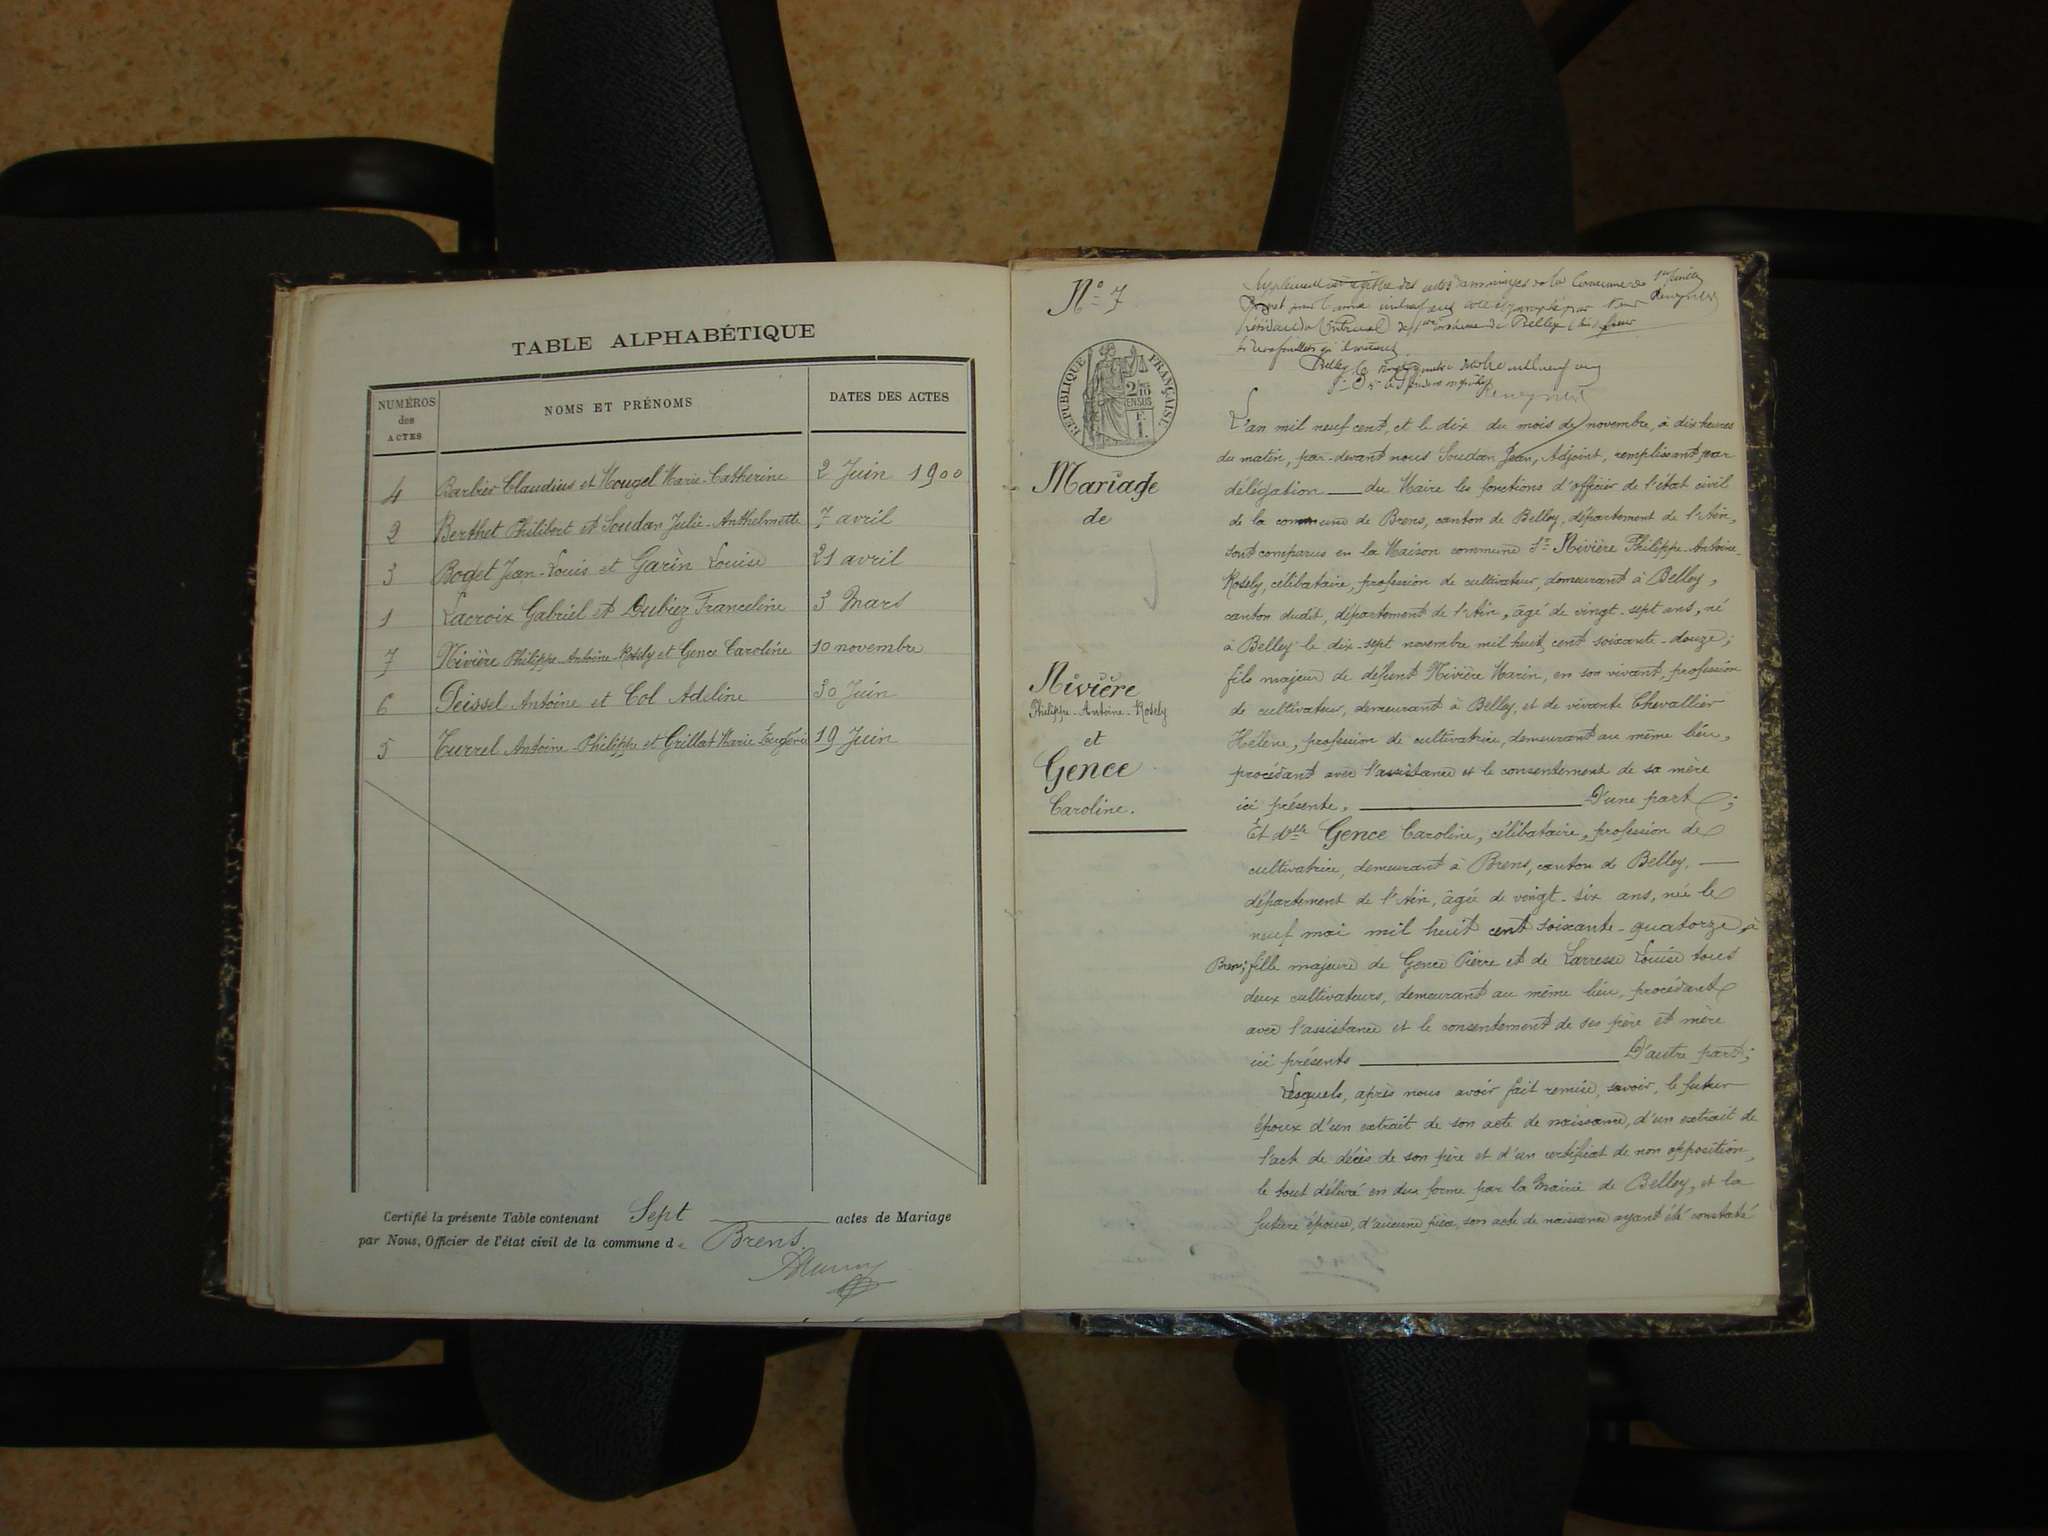 TABLE ALPHABÉTIQUE
NUMÉROS des ACTES
NOMS ET PRÉNOMS
DATES DES ACTES
4 Barbier Claudius et Mougel Marie-Catherine 2 Juin 1900
2 Berthet Philibert et Soudan Julie-Anthelmette 7 avril
3 Boget Jean-Louis et Garin Louise 21 avril
1 Lacroix Gabriel et Dubiez Franceline 3 Mars
7 Nivière Philippe-Antoine-Rosely et Gence Caroline 10 novembre
6 Peissel Antoine et Col Adeline 30 Juin
5 Turrel Antoine-Philippe et Grillat Marie Eugénie 19 Juin
Certifié la présente Table contenant Sept actes de Mariage
par Nous, Officier de l'état civil de la commune de Brens
N° 7
RÉPUBLIQUE FRANÇAISE
Mariage
de
Nivière
Philippe-Antoine-Rosely
et
Gence
Caroline.
L'an mil neuf cent, et le dix du mois de novembre, à dix heures
du matin, par-devant nous Soudan Jean, Adjoint, remplissant par
délégation du Maire les fonctions d'officier de l'état civil
de la commune de Brens, canton de Belley, département de l'Ain,
sont comparus en la Maison commune Sr Nivière Philippe-Antoine-
Rosely, célibataire, profession de cultivateur, demeurant à Belley,
canton dudit, département de l'Ain, âgé de vingt-sept ans, né
à Belley le dix-sept novembre mil huit cent soixante-douze;
fils majeur de défunt Nivière Marin, en son vivant, profession
de cultivateur, demeurant à Belley, et de vivante Chevallier
Hélène, profession de cultivatrice, demeurant au même lieu,
procédant avec l'assistance et le consentement de sa mère
ici présente, D'une part;
Et delle Gence Caroline, célibataire, profession de
cultivatrice, demeurant à Brens, canton de Belley,
département de l'Ain, âgée de vingt-six ans, née le
neuf mai mil huit cent soixante-quatorze, à
Brens; fille majeure de Gence Pierre et de Larresse Louise tous
deux cultivateurs, demeurant au même lieu, procédant
avec l'assistance et le consentement de ses père et mère
ici présents D'autre part;
Lesquels, après nous avoir fait remise, savoir, le futur
époux d'un extrait de son acte de naissance, d'un extrait de
l'act de décès de son père et d'un certificat de non opposition,
le tout délivré en due forme par la Mairie de Belley, et la
future épouse, d'aucune pièce, son acte de naissance ayant été constaté